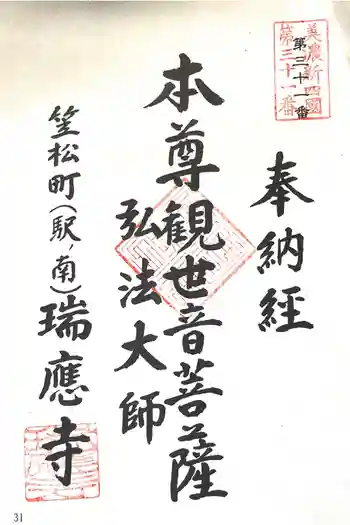 美濃新四國
第三十一番
第三十一番
奉納経
本尊観世音菩薩
弘法大師
笠松町(駅ノ南)瑞應寺
31